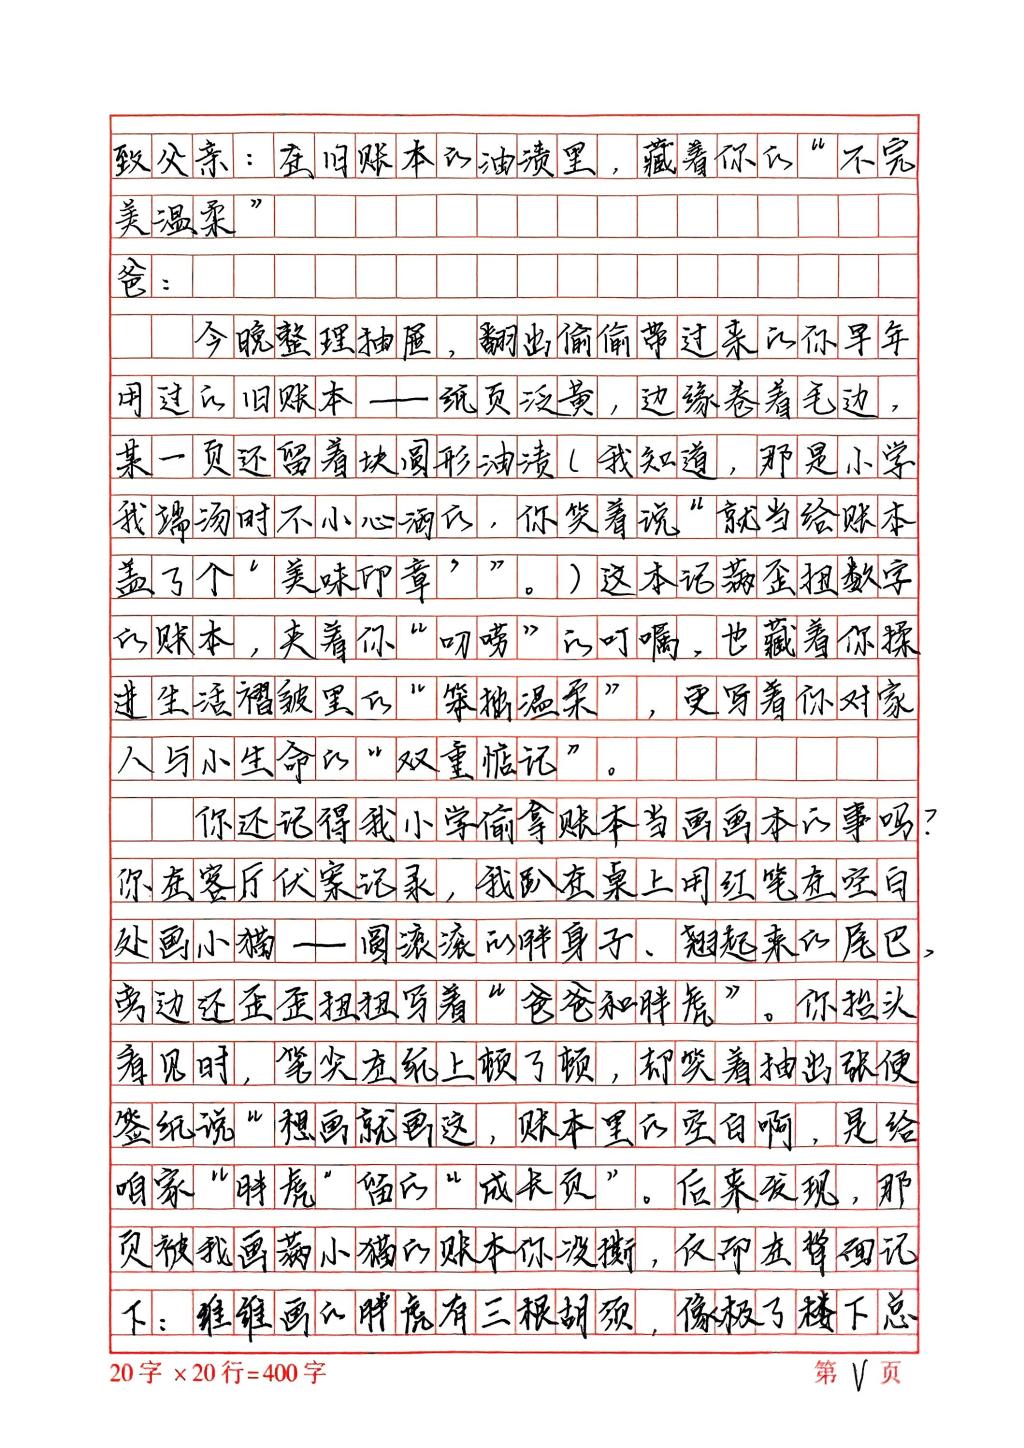 致父亲：在旧账本的油渍里，藏着你的“不完
美温柔”
爸：
今晚整理抽屉，翻出偷偷带过来的你早年
用过的旧账本——纸页泛黄，边缘卷着毛边，
某一页还留着块圆形油渍（我知道，那是小学
我端汤时不小心洒的，你笑着说“就当给账本
盖了个‘美味印章’”。）这本记满歪扭数字
的账本，夹着你“叨唠”的叮嘱，也藏着你揉
进生活褶皱里的“笨拙温柔”，更写着你对家
人与小生命的“双重惦记”。
你还记得我小学偷拿账本当画画本的事吗？
你在客厅伏案记录，我趴在桌上用红笔在空白
处画小猫——圆滚滚的胖身子、翘起来的尾巴，
旁边还歪歪扭扭写着“爸爸和胖虎”。你抬头
看见时，笔尖在纸上顿了顿，却笑着抽出张便
签纸说“想画就画这，账本里的空白啊，是给
咱家“胖虎”留的“成长页”。后来发现，那
页被我画满小猫的账本你没撕，反而在背面记
下：维维画的胖虎有三根胡须，像极了楼下总
20字×20行=400字
第 页